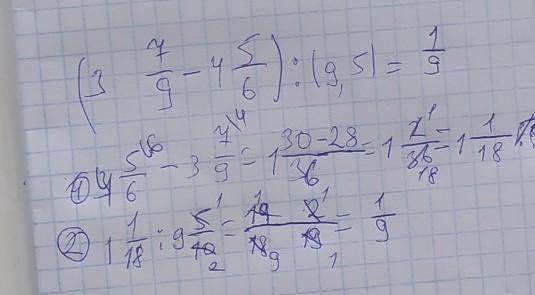 (3 7/9 - 4 5/6) : (9,5) = 1/9
① 4 5\6/6 - 3 7\4/9 = 1 30-28/36 = 1 2¹/36 18 = 1 1/18
② 1 1/18 : 9 5¹/10 2 = 19¹ 2¹/18 9 19 1 = 1/9